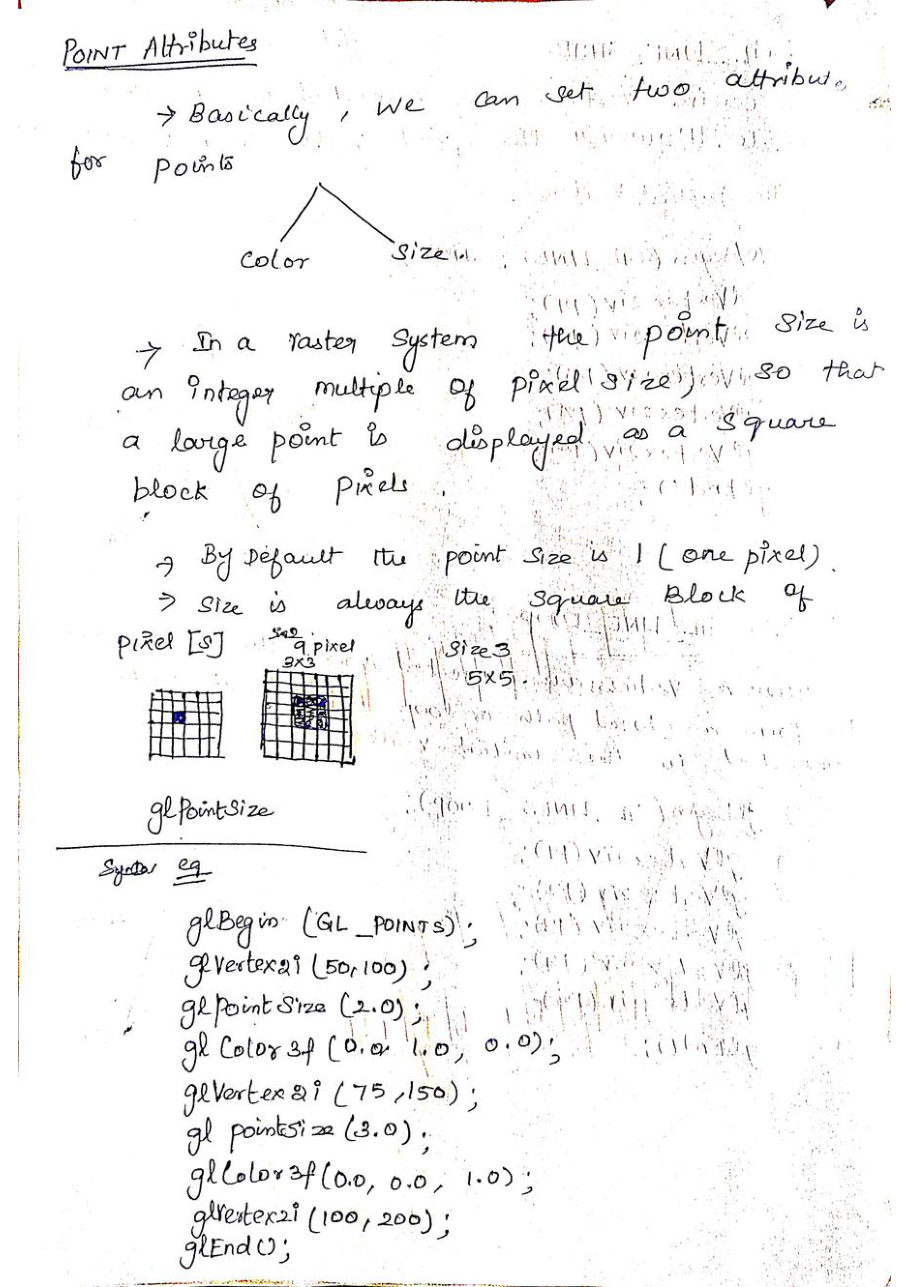 POINT Attributes
→ Basically, we can set two attribute
for points
Color Size
→ In a raster System the point Size is
an integer multiple of pixel size, so that
a large point is displayed as a Square
block of Pixels.
→ By Default the point Size is 1 (one pixel).
→ Size is always the square Block of
pixel [s] 9 pixel Size 3
3x3 5x5.
glPointSize
Syntax eg
glBegin (GL_POINTS);
glVertex2i (50,100);
glpointSize (2.0);
gl Color3f (0.0 1.0, 0.0);
glVertex2i (75,150);
gl pointsize (3.0);
glColor3f (0.0, 0.0, 1.0);
glvertex2i (100, 200);
glEnd();